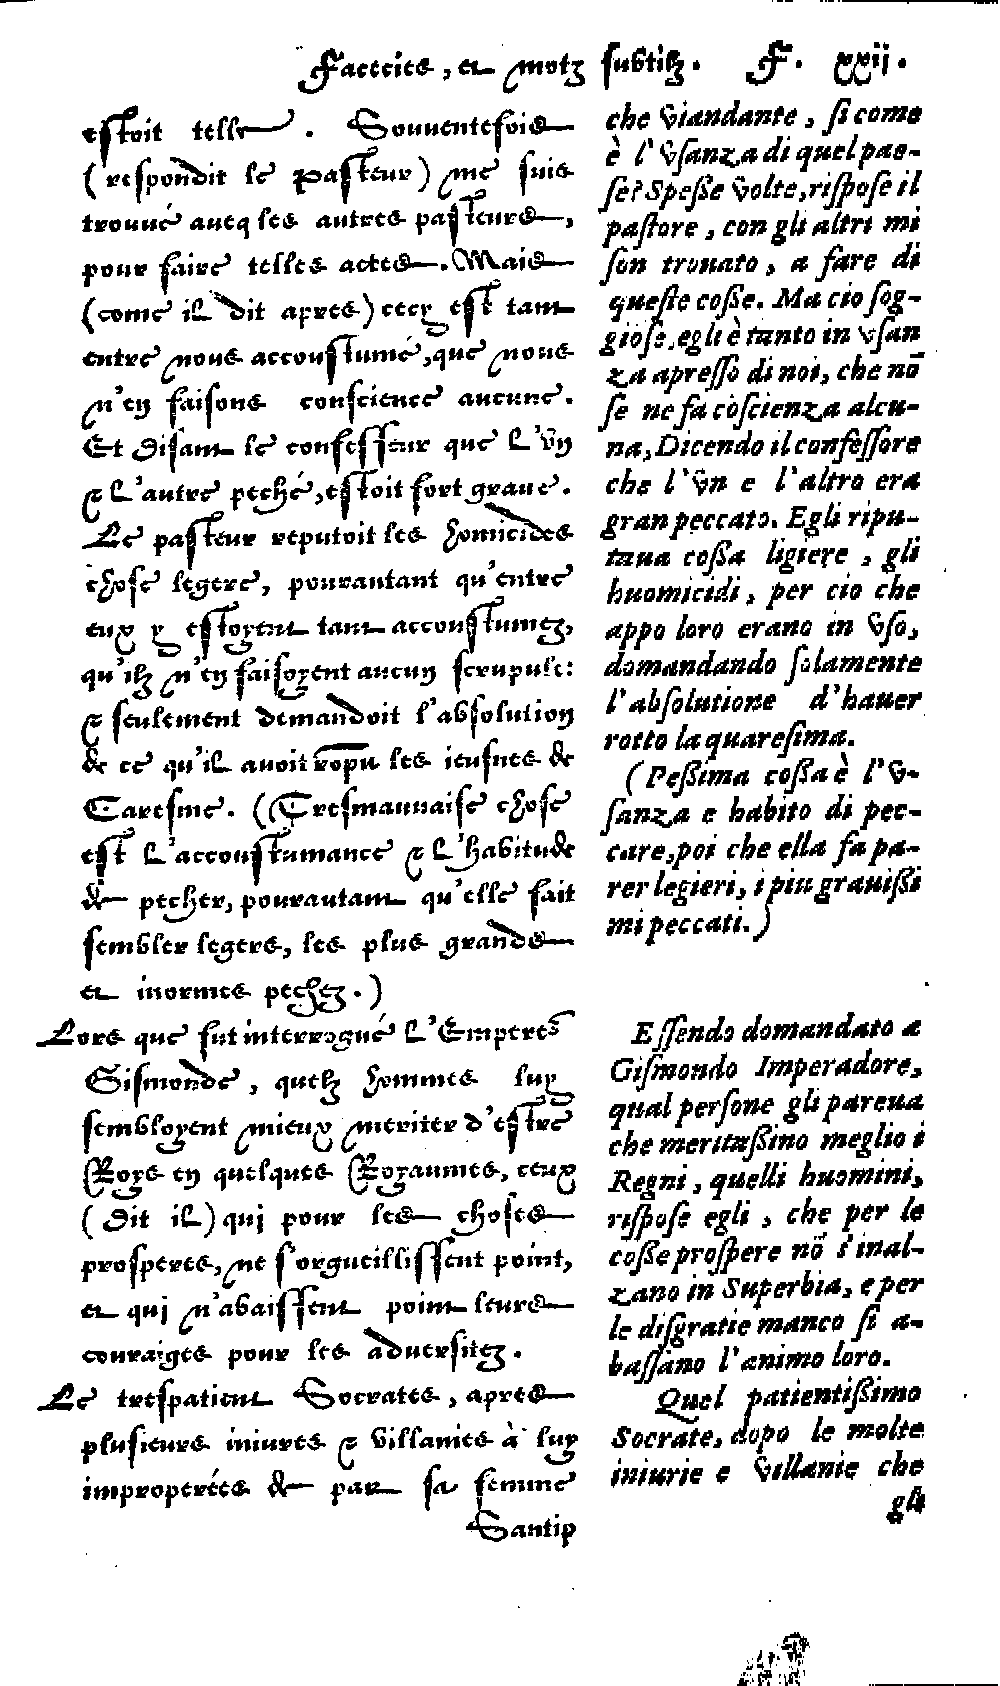 Facecies, et motz subtilz. F. xxij.
estoit telle. Souuentefois
(respondit le pasteur) me suis
trouué aueq les autres pasteurs,
pour faire telles actes. Mais
(come il dit apres) cecy est tant
entre nous accoustumé, que nous
n'en faisons conscience aucune.
Et disant le confesseur que l'vn
& l'autre peché, estoit fort graue.
Le pasteur reputoit les homicides
chose legere, pourautant qu'entre
eux y estoyent tant accoustumez,
qu'ilz n'en faisoyent aucun scrupule:
& seulement demandoit l'absolution
de ce qu'il auoit rõpu les ieusnes de
Caresme. (Tresmauuaise chose
est l'accoustumance & l'habitude
de pecher, pourautant qu'elle fait
sembler legers, les plus grands
et inormes pechez.)
Lors que fut interrogué l'Empereur
Sismonde, quelz hommes luy
sembloyent mieux meriter d'estre
Roys en quelques Royaumes, ceux
(dit il) qui pour les choses
prosperes, ne s'orgueillissent point,
et qui n'abaissent point leurs
couraiges pour les aduersitez.
Le trespatient Socrates, apres
plusieurs iniures & villanies à luy
improperées de par sa femme
Santip
che viandante, si come
è l'vsanza di quel pae-
se? Speße volte, rispose il
pastore, con gli altri mi
son trouato, a fare di
queste coße. Ma cio sog-
giose, egli è tanto in vsan
za apresso di noi, che nõ
se ne fa cõscienza alcu-
na, Dicendo il confessore
che l'vn e l'altro era
gran peccato. Egli ripu-
taua coßa ligiere, gli
huomicidi, per cio che
appo loro erano in vso,
domandando solamente
l'absolutione d'hauer
rotto la quaresima.
(Peßima coßa è l'v-
sanza e habito di pec-
care, poi che ella fa pa-
rer legieri, i piu grauißi
mi peccati.)
Essendo domandato a
Gismondo Imperadore,
qual persone gli pareua
che meritaßino meglio i
Regni, quelli huomini,
rispose egli, che per le
coße prospere nõ s'inal-
zano in Superbia, e per
le disgratie manco si a-
bassano l'animo loro.
Quel patientißimo
Socrate, dopo le molte
iniurie e villanie che
gli